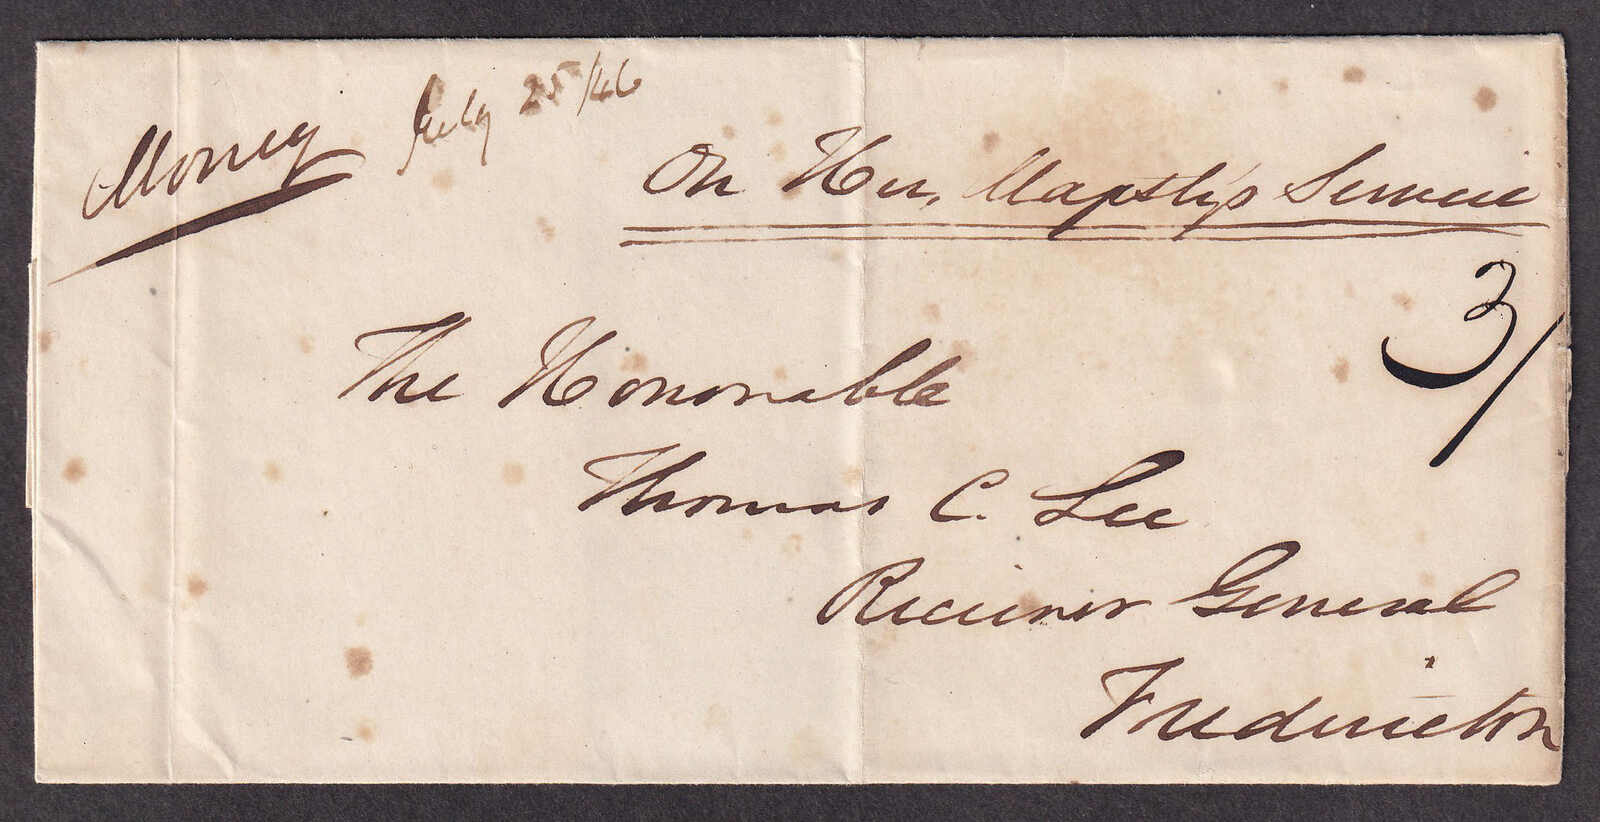 Money July 25/46
On Her Majesty's Service
3/
The Honorable
Thomas C. Lee
Receiver General
Fredericton